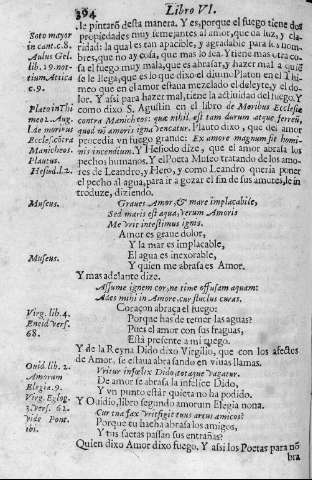 394
Libro VI.
le pintarõ desta manera. Y es, porque el fuego tiene dos
Soto mayor
in cant. c. 8.
Aulus Gel.
lib. 19. noct-
tium Attica
c. 9.
propiedades muy semejantes al amor, que da luz, y cla-
ridad: la qual es tan apacible, y agradable para los hom-
bres, que no ay cosa, que mas lo sea. Y tiene mas otra co-
sa el fuego muy mala, que es abrasar, y hazer mal a quiẽ
se le llega, que es lo que dixo el diuino Platon en el Thi-
meo que en el amor estaua mezclado el deleyte, y el do-
lor. Y assi para hazer mal, tiene la actiuidad del fuego. Y
Plato in Thi
meo 2. Aug.
l. de moribus
Ecclesiæ cõtra
Manicheos.
Plautus.
Hesiod. l. 2.
como dixo S. Agustin en el libro de Moribus Ecclesiæ
contra Manicheos: que nihil est tam durum atque ferreũ,
quod nõ amoris igna vencatur. Plauto dixo, que del amor
procedia vn fuego grande: Ex amore magnum fit homi-
nis incendium. Y Hesiodo dize, que el amor abrasa los
pechos humanos. Y el Poeta Museo tratando de los amo-
res de Leandro, y Hero, y como Leandro queria poner
el pecho al agua, para ir a gozar el fin de sus amores, le in
troduze, diziendo.
Museus.
Graues Amor, & mare implacabile,
Sed maris est aqua, verum Amoris
Me vrit intestimus ignis.
Amor es graue dolor,
Y la mar es implacable,
Museus.
El agua es inexorable,
Y quien me abrasa es Amor.
Y mas adelante dize.
Assume ignem cor, ne time offusam aquam:
Ades mihi in Amore, cur fluctus curas.
Coraçon abraça el fuego:
Virg. lib. 4.
Eneid vers.
68.
Porque has de temer las aguas?
Pues el amor con sus fraguas,
Està presente a mi ruego.
Y de la Reyna Dido dixo Virgilio, que con los afectos
de Amor, se estaua abrasando en viuas llamas.
Ouid. lib. 2.
Amorum
Elegia. 9.
Virg. Eglog.
3. vers. 62.
vide Pont.
ibi.
Vritur infœlix Dido totaque vagatur.
De amor se abrasa la infelice Dido,
Y vn punto estàr quieta no ha podido.
Y Ouidio, libro segundo amorum Elegia nona.
Cur tua fax vrit figit tuus arcus amicos?
Porque tu hacha abrasa los amigos,
Y tus saetas passan sus entrañas?
Quien dixo Amor dixo fuego. Y assi los Poetas para nõ
bra